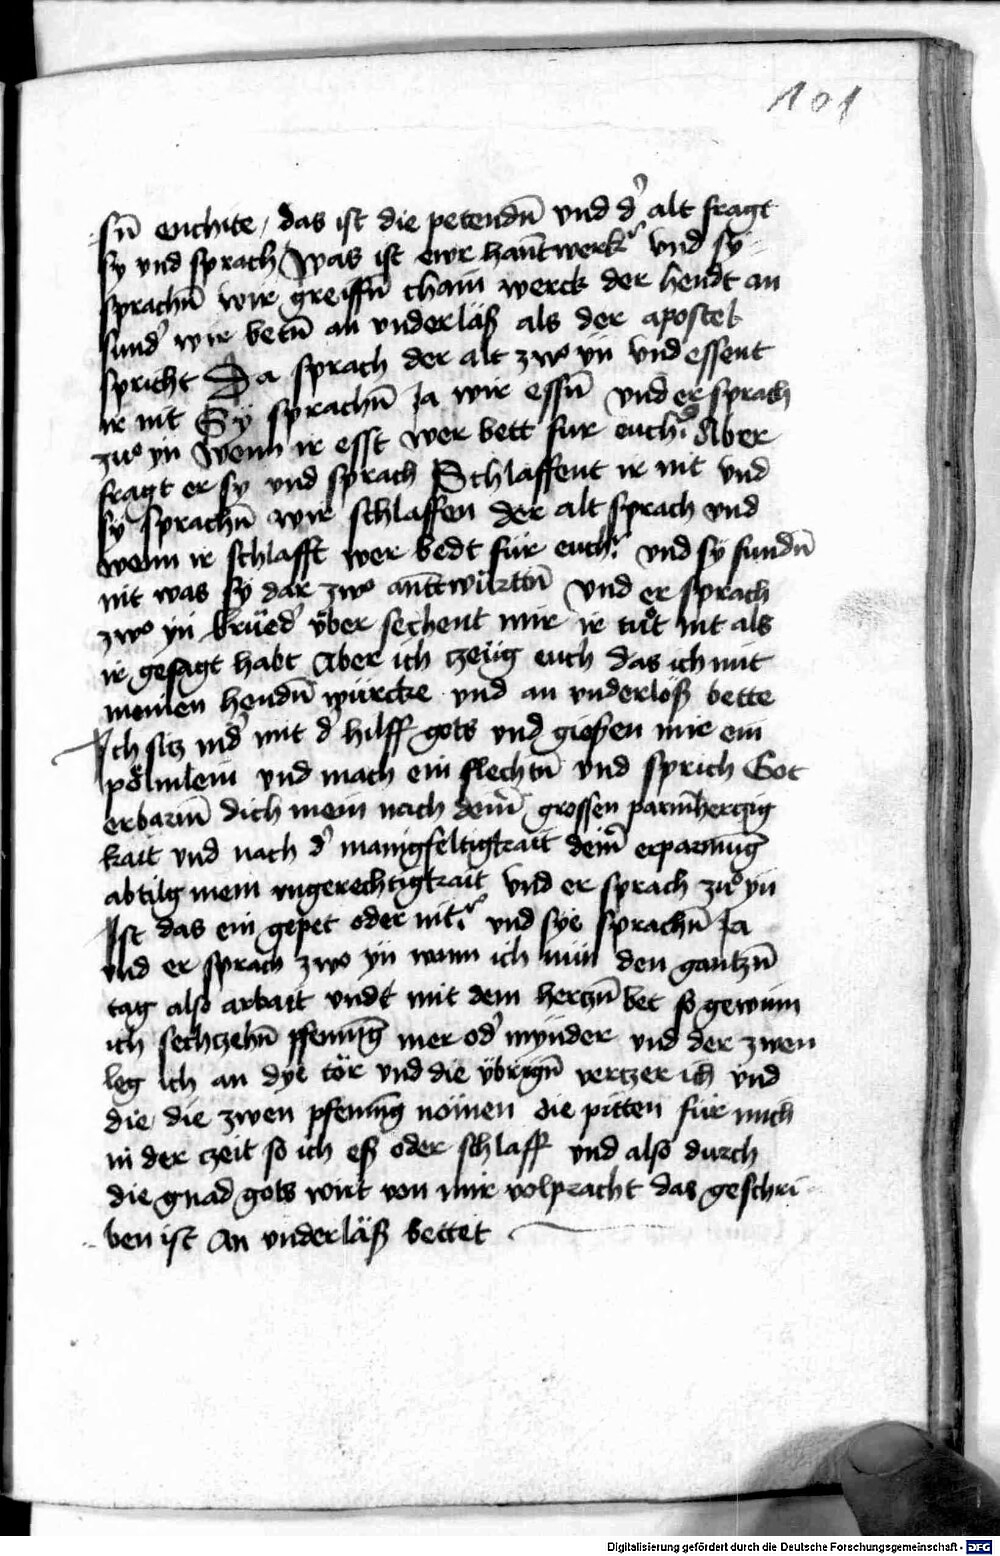 101
sūn euchite / das ist die petendn̄ vnd d' alt fragt
sy vnd sprach Was ist ewr han̄twerk? vnd sy
sprachn̄ wir greiffn̄ chain werck der hendt an
sund' wir betn̄ an vnderläß als der apostel
spricht Da sprach der alt zwo yn vnd essent
ir nit Sÿ sprachn̄ Ja wir essn̄ vnd er sprach
zuͦ yn Wenn ir esst wer bett fur euch? Aber
fragt er sy vnd sprach Schlaffent ir nit vnd
sÿ sprachn̄ wir schlaffen der alt sprach vnd
wenn ir schlafft wer bedt für euch? vnd sÿ fundn̄
nit was sÿ dar zwo an̄ttwürttn̄ vnd er sprach
zwo yn brüed' über sechent mir ir tuͦt nit als
ir gesagt habt Aber ich tzeüg euch das ich mit
meinen hendn̄ würcke vnd an vnderlöß bette
Ich sitz nid' mit d' hilff gots vnd gieß̈en mir ein
pölmlein vnd mach ein flechtn̄ vnd sprich Got
erbarm̄ dich mein nach dein̄ grossen parm̄hertzig
kait vnd nach d' manigfeltigkait dein̄ erparmūg
abtilg mein vngerechtigkait vnd er sprach zuͦ yn
Ist das ein gepet oder nit? vnd sye sprachn̄ Ja
vnd er sprach zwo yn wann ich nün den gantzn̄
tag also arbait vndt mit dem hertzn̄ bet so gewinn
ich sechtzehn̄ pfennīg mer od' mynder vnd der zwen
leg ich an dye tör vnd die übrign̄ vertzer ich vnd
die die zwen pfenīng nömen die pitten für mich
in der tzeit so ich eß oder schlaff vnd also durch
die gnad gots wirt von mir volpracht das geschri
ben ist An vnderläß bettet
Digitalisierung gefördert durch die Deutsche Forschungsgemeinschaft - DFG